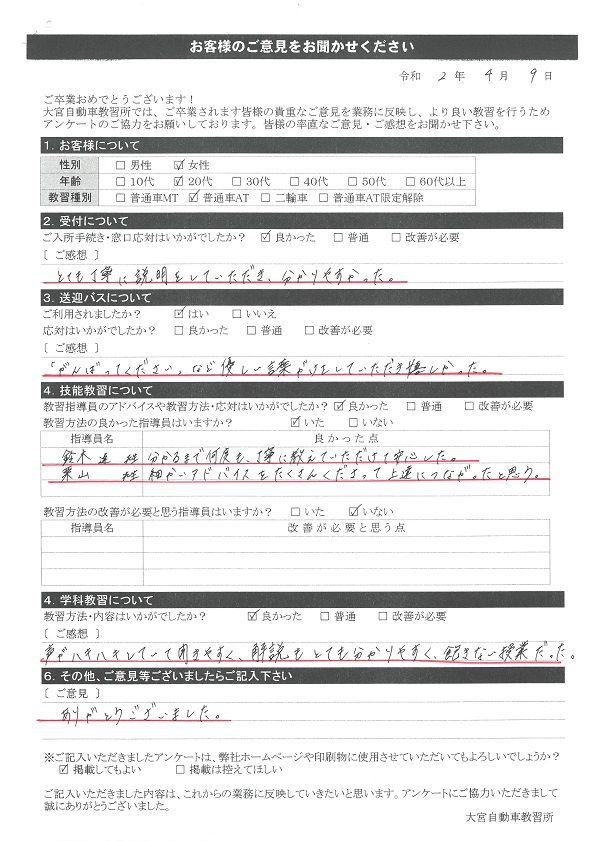 お客様のご意見をお聞かせください
令和 2 年 4 月 9 日
ご卒業おめでとうございます！
大宮自動車教習所では、ご卒業されます皆様の貴重なご意見を業務に反映し、より良い教習を行うため
アンケートのご協力をお願いしております。皆様の率直なご意見・ご感想をお聞かせ下さい。
1. お客様について
性別 □ 男性 ☑ 女性
年齢 □ 10代 ☑ 20代 □ 30代 □ 40代 □ 50代 □ 60代以上
教習種別 □ 普通車MT ☑ 普通車AT □ 二輪車 □ 普通車AT限定解除
2. 受付について
ご入所手続き・窓口応対はいかがでしたか？ ☑ 良かった □ 普通 □ 改善が必要
〔 ご感想 〕
とても丁寧に説明をしていただき、分かりやすかった。
3. 送迎バスについて
ご利用されましたか？ ☑ はい □ いいえ
応対はいかがでしたか？ □ 良かった □ 普通 □ 改善が必要
〔 ご感想 〕
「がんばってください」など優しい言葉がけをしていただき嬉しかった。
4. 技能教習について
教習指導員のアドバイスや教習方法・応対はいかがでしたか？ ☑ 良かった □ 普通 □ 改善が必要
教習方法の良かった指導員はいますか？ ☑ いた □ いない
指導員名 良かった点
鈴木 分かるまで何度も、丁寧に教えていただけて安心した。
栗山 細かいアドバイスをたくさんくださって上達につながったと思う。
教習方法の改善が必要と思う指導員はいますか？ □ いた ☑ いない
指導員名 改善が必要と思う点
4. 学科教習について
教習方法・内容はいかがでしたか？ ☑ 良かった □ 普通 □ 改善が必要
〔 ご感想 〕
声がハキハキしていて聞きやすく、解説もとても分かりやすく、飽きない授業だった。
6. その他、ご意見等ございましたらご記入下さい
〔 ご意見 〕
ありがとうございました。
※ご記入いただきましたアンケートは、弊社ホームページや印刷物に使用させていただいてもよろしいでしょうか？
☑ 掲載してもよい □ 掲載は控えてほしい
ご記入いただきました内容は、これからの業務に反映していきたいと思います。アンケートにご協力いただきまして
誠にありがとうございました。
大宮自動車教習所